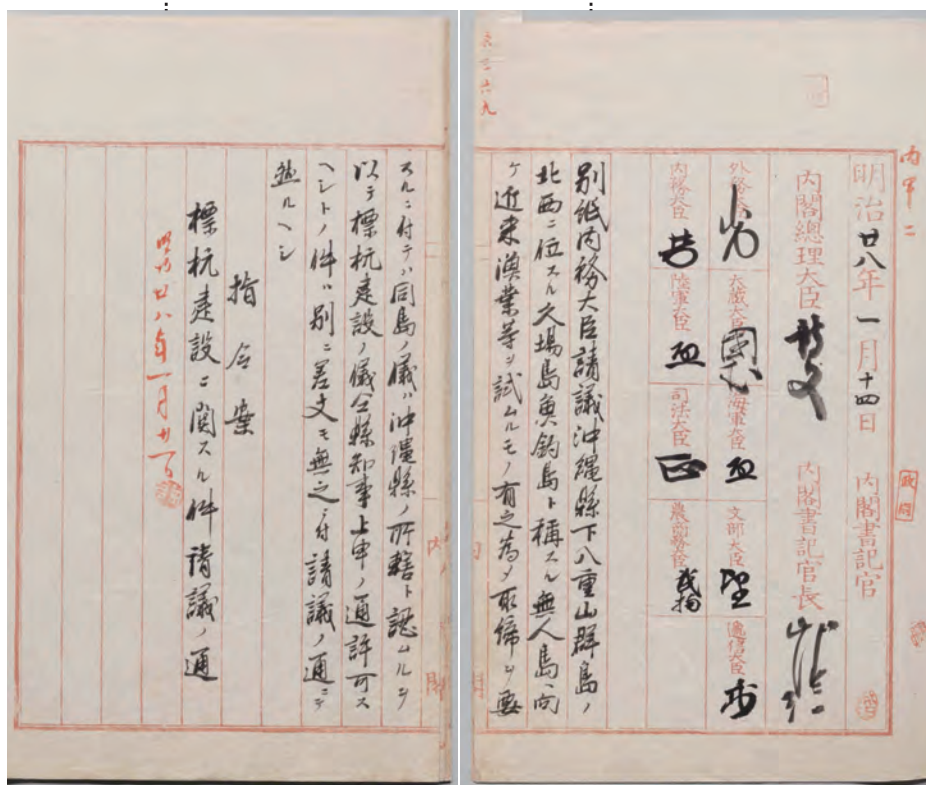 明治廿八年一月十四日
内閣書記官
内閣總理大臣
内閣書記官長
外務大臣
大藏大臣
海軍大臣
文部大臣
遞信大臣
内務大臣
陸軍大臣
司法大臣
農商務大臣
別紙内務大臣請議沖縄縣下八重山群島ノ
北西ニ位スル久場島魚釣島ト稱スル無人島ヘ向
ケ近来漁業等ヲ試ムルモノ有之為メ取締ヲ要
スルニ付テハ同島ノ儀ハ沖縄縣ノ所轄ト認ムルヲ
以テ標杭建設ノ儀仝縣知事上申ノ通許可ス
ヘシトノ件ハ別ニ差支モ無之ニ付請議ノ通ニテ
然ルヘシ
指令案
標杭建設ニ関スル件請議ノ通
明治廿八年一月廿一日